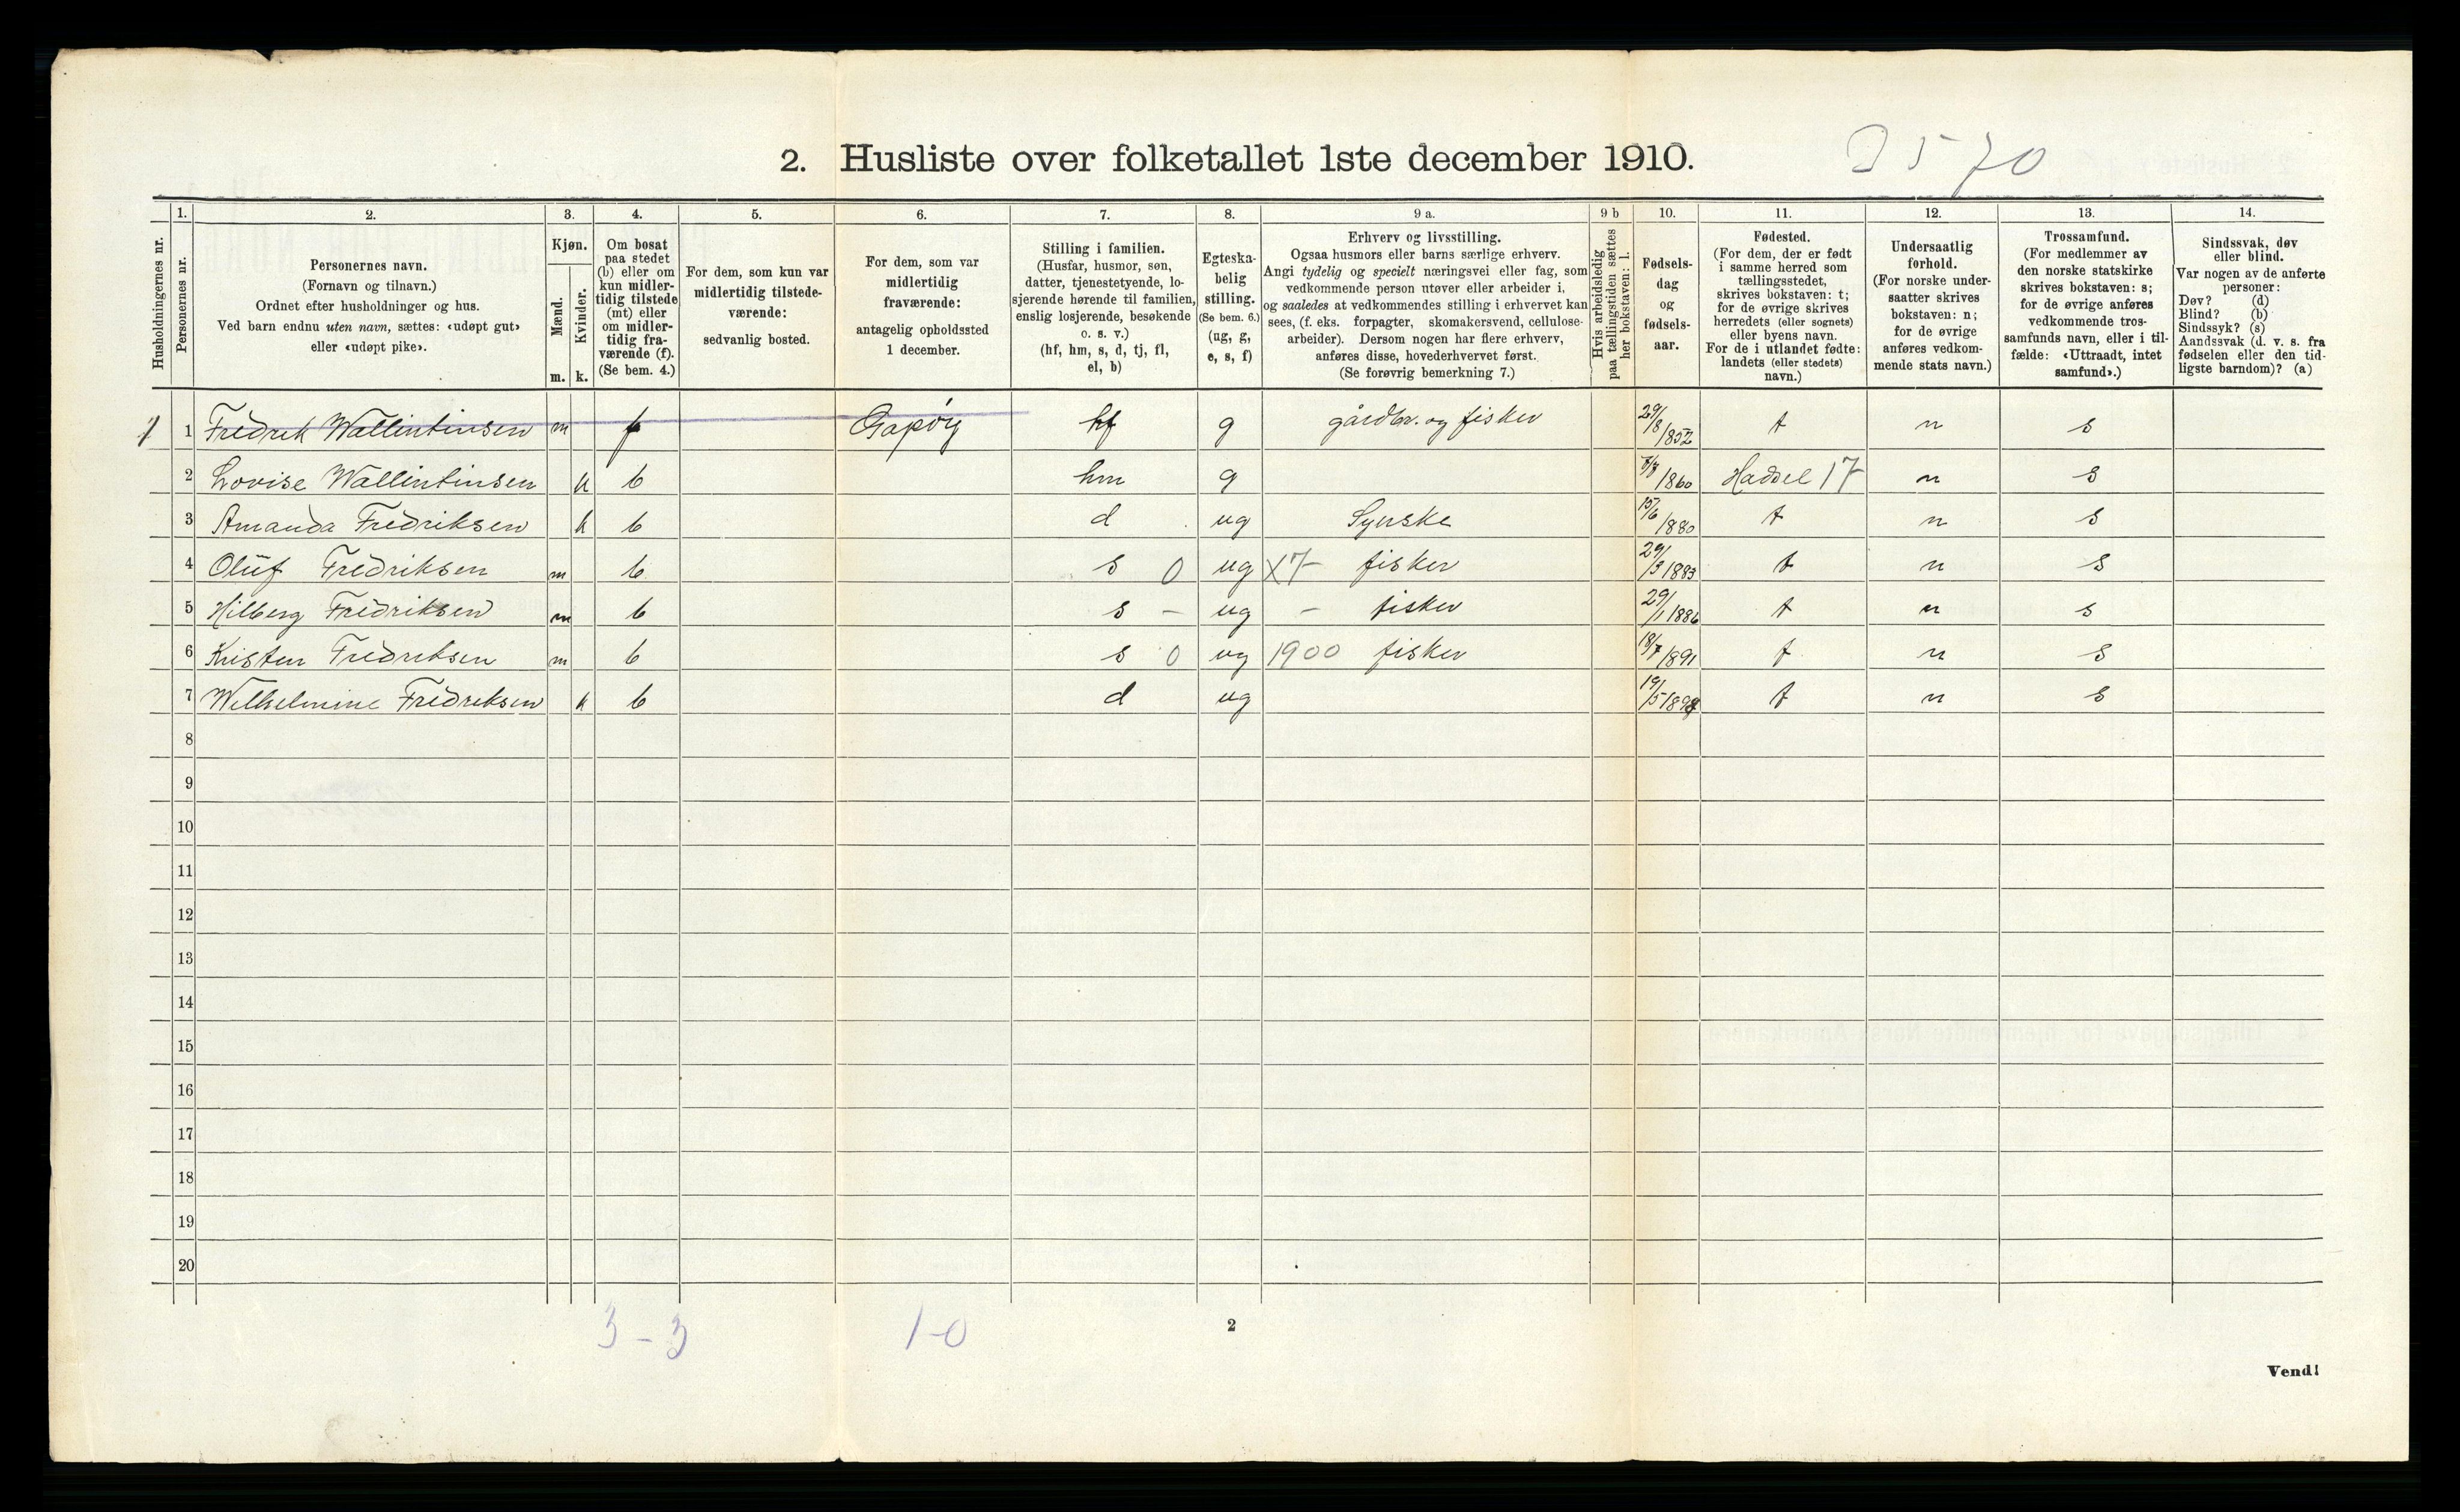 2. Husliste over folketallet 1ste december 1910. 3570
Husholdningernes nr.
1. Personernes nr.
2. Personernes navn.
(Fornavn og tilnavn.)
Ordnet efter husholdninger og hus.
Ved barn endnu uten navn, sættes: «udøpt gut»
eller «udøpt pike».
3. Kjøn.
Mænd. m.
Kvinder. k.
4. Om bosat
paa stedet
(b) eller om
kun midler-
tidig tilstede
(mt) eller
om midler-
tidig fra-
værende (f).
(Se bem. 4.)
5. For dem, som kun var
midlertidig tilstede-
værende:
sedvanlig bosted.
6. For dem, som var
midlertidig
fraværende:
antagelig opholdssted
1 december.
7. Stilling i familien.
(Husfar, husmor, søn,
datter, tjenestetyende, lo-
sjerende hørende til familien,
enslig losjerende, besøkende
o. s. v.)
(hf, hm, s, d, tj, fl,
el, b)
8. Egteska-
belig
stilling.
(Se bem. 6.)
(ug, g,
e, s, f)
9 a. Erhverv og livsstilling.
Ogsaa husmors eller barns særlige erhverv.
Angi tydelig og specielt næringsvei eller fag, som
vedkommende person utøver eller arbeider i,
og saaledes at vedkommendes stilling i erhvervet kan
sees, (f. eks. forpagter, skomakersvend, cellulose-
arbeider). Dersom nogen har flere erhverv,
anføres disse, hovederhvervet først.
(Se forøvrig bemerkning 7.)
9 b Hvis arbeidsledig
paa tællingstiden sættes
her bokstaven: l.
10. Fødsels-
dag
og
fødsels-
aar.
11. Fødested.
(For dem, der er født
i samme herred som
tællingsstedet,
skrives bokstaven: t;
for de øvrige skrives
herredets (eller sognets)
eller byens navn.
For de i utlandet fødte:
landets (eller stedets)
navn.)
12. Undersaatlig
forhold.
(For norske under-
saatter skrives
bokstaven: n;
for de øvrige
anføres vedkom-
mende stats navn.)
13. Trossamfund.
(For medlemmer av
den norske statskirke
skrives bokstaven: s;
for de øvrige anføres
vedkommende tros-
samfunds navn, eller i til-
fælde: «Uttraadt, intet
samfund».)
14. Sindssvak, døv
eller blind.
Var nogen av de anførte
personer:
Døv? (d)
Blind? (b)
Sindssyk? (s)
Aandssvak (d. v. s. fra
fødselen eller den tid-
ligste barndom)? (a)
1 1 Fredrik Wallintinsen m f Gapøy hf g gårdbr. og fisker 29/8 1852 t n s
2 Lovise Wallintinsen k b hm g 7/7 1860 Hadsel 17 n s
3 Amanda Fredriksen k b d ug Syerske 15/6 1880 t n s
4 Oluf Fredriksen m b s 0 ug X7- fisker 29/3 1883 t n s
5 Hilberg Fredriksen m b s - ug - fisker 29/1 1886 t n s
6 Kristen Fredriksen m b s 0 ug 1900 fisker 18/7 1891 t n s
7 Wilhelmine Fredriksen k b d ug 19/5 1898 t n s
8
9
10
11
12
13
14
15
16
17
18
19
20
3-3 1-0
2
Vend!